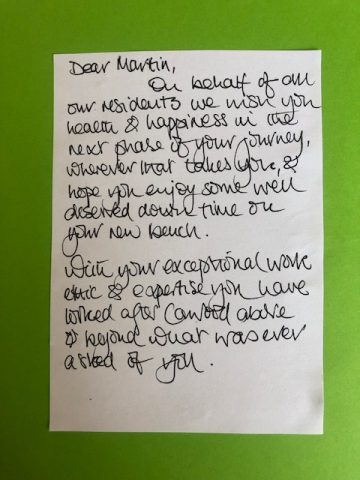 Dear Martin,
On behalf of all
our residents we wish you
health & happiness in the
next phase of your journey,
wherever that takes you, &
hope you enjoy some well
deserved down time on
your new bench.
With your exceptional work
ethic & expertise you have
looked after Cawood above
& beyond what was ever
asked of you.